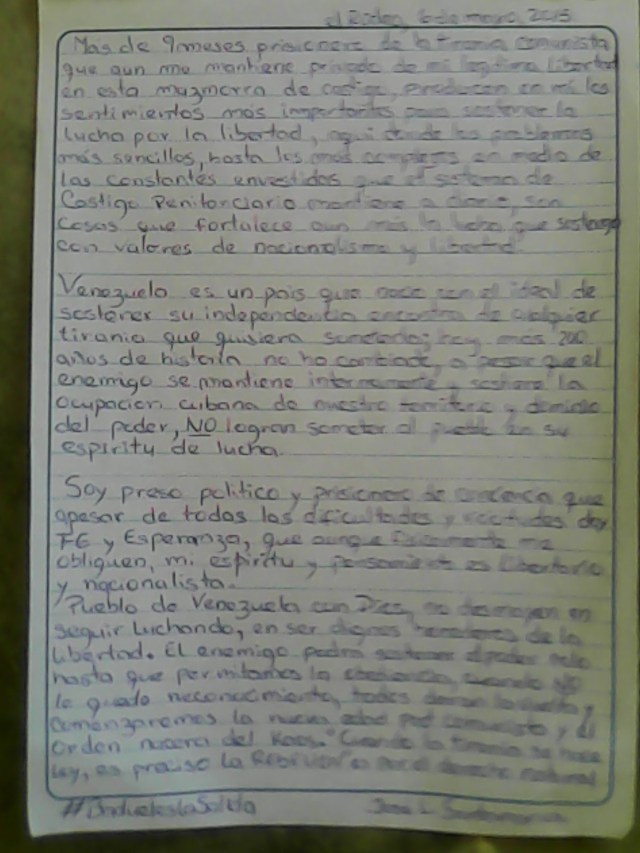 el Rodeo, 6 de mayo, 2015
Mas de 9 meses prisionero de la tirania comunista
que aun me mantiene privado de mi legitima libertad
en esta mazmorra de castigo, producen en mi los
sentimientos más importantes para sostener la
lucha por la libertad, aqui desde los problemas
más sencillos, hasta los mas complejos en medio de
las constantes envestidas que el sistema de
Castigo Penitenciario mantiene a diario, son
cosas que fortalece aun más la lucha que sostengo
con valores de nacionalismo y libertad.
Venezuela es un pais que nace con el ideal de
sostener su independencia encontra de cualquier
tirania que quisiera someterla; hoy mas 200
años de historia no ha cambiado, a pesar que el
enemigo se mantiene internamente y sostiene la
ocupacion cubana de nuestro territorio y dominio
del poder, NO logran someter al pueblo en su
espiritu de lucha.
Soy preso politico y prisionero de conciencia que
apesar de todas las dificultades y vicitudes doy
FE y Esperanza, que aunque fisicamente me
obliguen, mi espiritu y pensamiento es libertario
y nacionalista.
Pueblo de Venezuela con Dios, no desmayen en
seguir luchando, en ser dignos herederos de la
libertad. El enemigo podrá sostener el poder solo
hasta que permitamos la obediencia, cuando NO
le quede reconocimiento, todos daran la vuelta y
Comenzaremos la nueva edad post comunista y el
Orden nacera del Kaos. "Cuando la tirania se hace
ley, es preciso la Rebelion es por el derecho natural
#UnidueleslaSalida Jose L. Santamaria